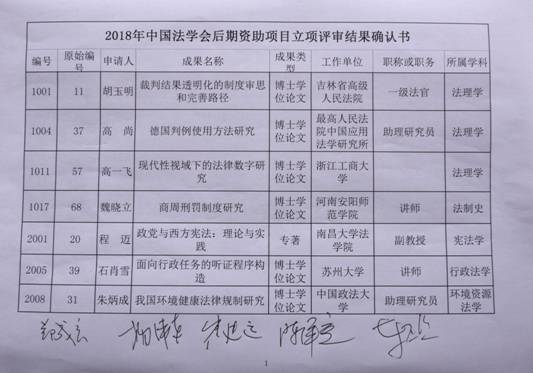 2018年中国法学会后期资助项目立项评审结果确认书
编号 原始编号 申请人 成果名称 成果类型 工作单位 职称或职务 所属学科
1001 11 胡玉明 裁判结果透明化的制度审思和完善路径 博士学位论文 吉林省高级人民法院 一级法官 法理学
1004 37 高尚 德国判例使用方法研究 博士学位论文 最高人民法院中国应用法学研究所 助理研究员 法理学
1011 57 高一飞 现代性视域下的法律数字研究 博士学位论文 浙江工商大学 法理学
1017 68 魏晓立 商周刑罚制度研究 博士学位论文 河南安阳师范学院 讲师 法制史
2001 20 程迈 政党与西方宪法：理论与实践 专著 南昌大学法学院 副教授 宪法学
2005 39 石肖雪 面向行政任务的听证程序构造 博士学位论文 苏州大学 讲师 行政法学
2008 31 朱炳成 我国环境健康法律规制研究 博士学位论文 中国政法大学 助理研究员 环境资源法学
1